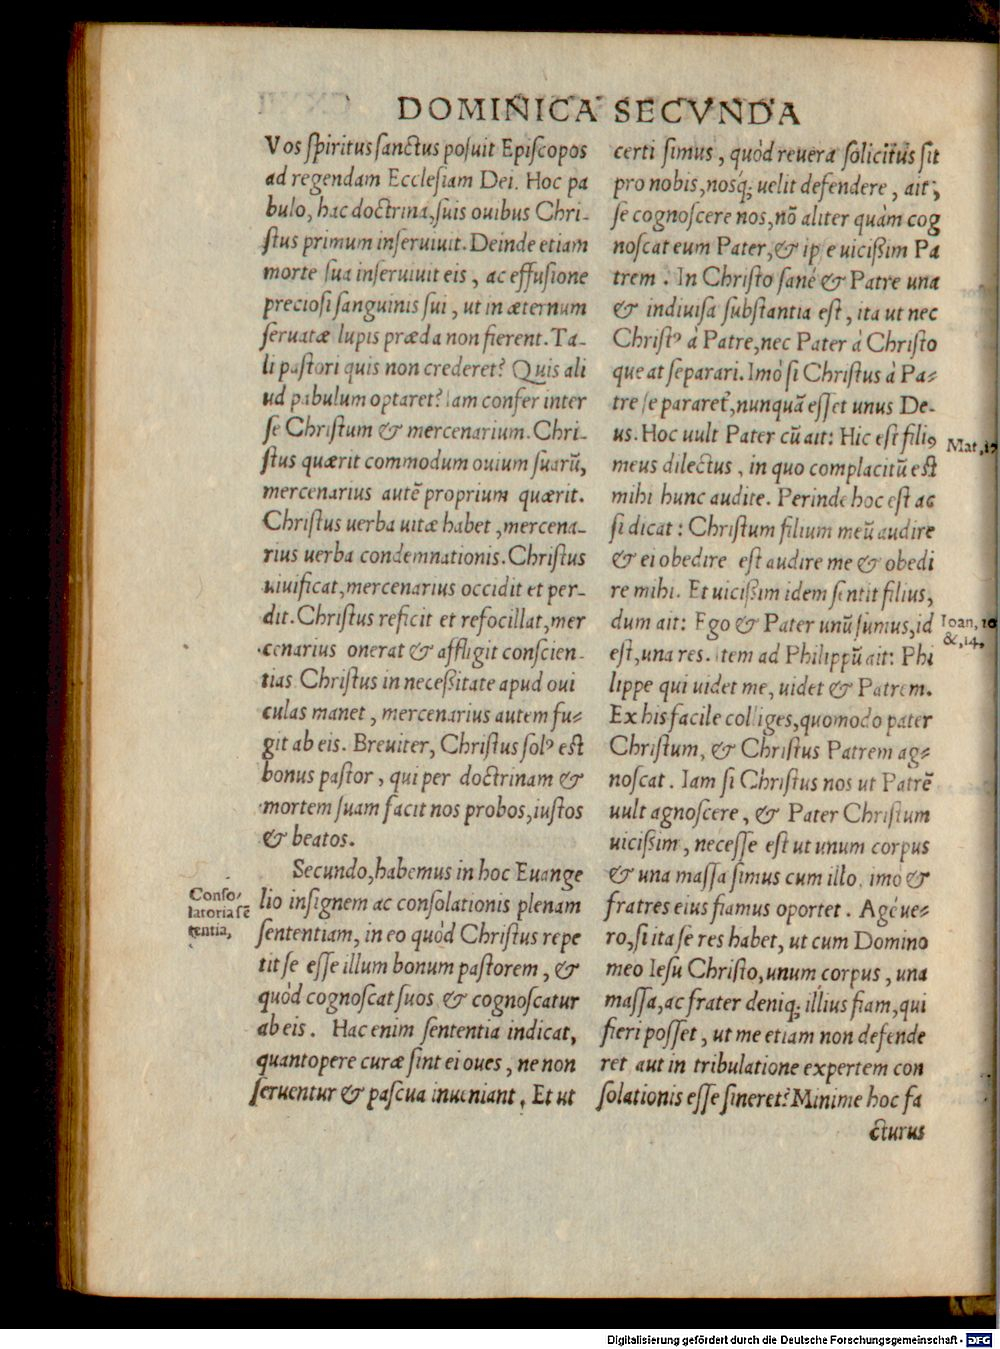 DOMINICA SECVNDA
Vos ſpiritus ſanctus poſuit Epiſcopos
ad regendam Eccleſiam Dei. Hoc pa
bulo, hac doctrina, ſuis ouibus Chri-
ſtus primum inſeruiuit. Deinde etiam
morte ſua inſeruiuit eis, ac effuſione
precioſi ſanguinis ſui, ut in æternum
ſeruatæ lupis præda non fierent. Ta-
li paſtori quis non crederet? Quis ali
ud pabulum optaret? Iam confer inter
ſe Chriſtum & mercenarium. Chri-
ſtus quærit commodum ouium ſuarũ,
mercenarius autẽ proprium quærit.
Chriſtus uerba uitæ habet, mercena-
rius uerba condemnationis. Chriſtus
uiuificat, mercenarius occidit et per-
dit. Chriſtus reficit et refocillat, mer
cenarius onerat & affligit conſcien-
tias Chriſtus in neceßitate apud oui
culas manet, mercenarius autem fu-
git ab eis. Breuiter, Chriſtus solꝰ eſt
bonus paſtor, qui per doctrinam &
mortem ſuam facit nos probos, iuſtos
& beatos.
Secundo, habemus in hoc Euange
lio inſignem ac conſolationis plenam
ſententiam, in eo quòd Chriſtus repe
tit ſe eſſe illum bonum paſtorem, &
quòd cognoſcat ſuos & cognoſcatur
ab eis. Hac enim ſententia indicat,
quantopere curæ ſint ei oues, ne non
ſeruentur & paſcua inueniant. Et ut
Conſo-
latoria ſẽ
tentia,
certi ſimus, quòd reuera ſolicitus ſit
pro nobis, nosq́; uelit defendere, ait,
ſe cognoſcere nos, nõ aliter quàm cog
noſcat eum Pater, & ipſe uicißim Pa
trem. In Chriſto ſanè & Patre una
& indiuiſa ſubſtantia eſt, ita ut nec
Chriſtꝰ à Patre, nec Pater à Chriſto
queat ſeparari. Imò ſi Chriſtus à Pa-
tre ſepararet, nunquã eſſet unus De-
us. Hoc uult Pater cũ ait: Hic eſt filiꝰ
meus dilectus, in quo complacitũ eſt
mihi hunc audite. Perinde hoc eſt ac
ſi dicat: Chriſtum filium meũ audire
& ei obedire eſt audire me & obedi
re mihi. Et uicißim idem ſentit filius,
dum ait: Ego & Pater unũ ſumus, id
eſt, una res. Item ad Philippũ ait: Phi
lippe qui uidet me, uidet & Patrem.
Ex his facile colliges, quomodo pater
Chriſtum, & Chriſtus Patrem ag-
noſcat. Iam ſi Chriſtus nos ut Patrẽ
uult agnoſcere, & Pater Chriſtum
uicißim, neceſſe eſt ut unum corpus
& una maſſa ſimus cum illo, imò &
fratres eius fiamus oportet. Agè ue-
ro, ſi ita ſe res habet, ut cum Domino
meo Ieſu Chriſto, unum corpus, una
maſſa, ac frater deniq; illius fiam, qui
fieri poſſet, ut me etiam non defende
ret aut in tribulatione expertem con
ſolationis eſſe ſineret? Minime hoc fa
cturus
Mat, 17
Ioan, 10
&, 14,
Digitalisierung gefördert durch die Deutsche Forschungsgemeinschaft - DFG